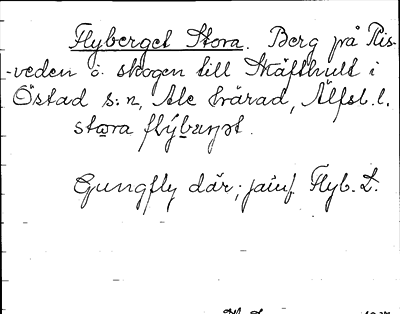 Flyberget Stora. Berg på Ris-
-veden ö. skogen till Skäfthult i
Östad s:n, Ale härad, Älfsb. l.
stora
Gungfly där; jämf Flyb. L.